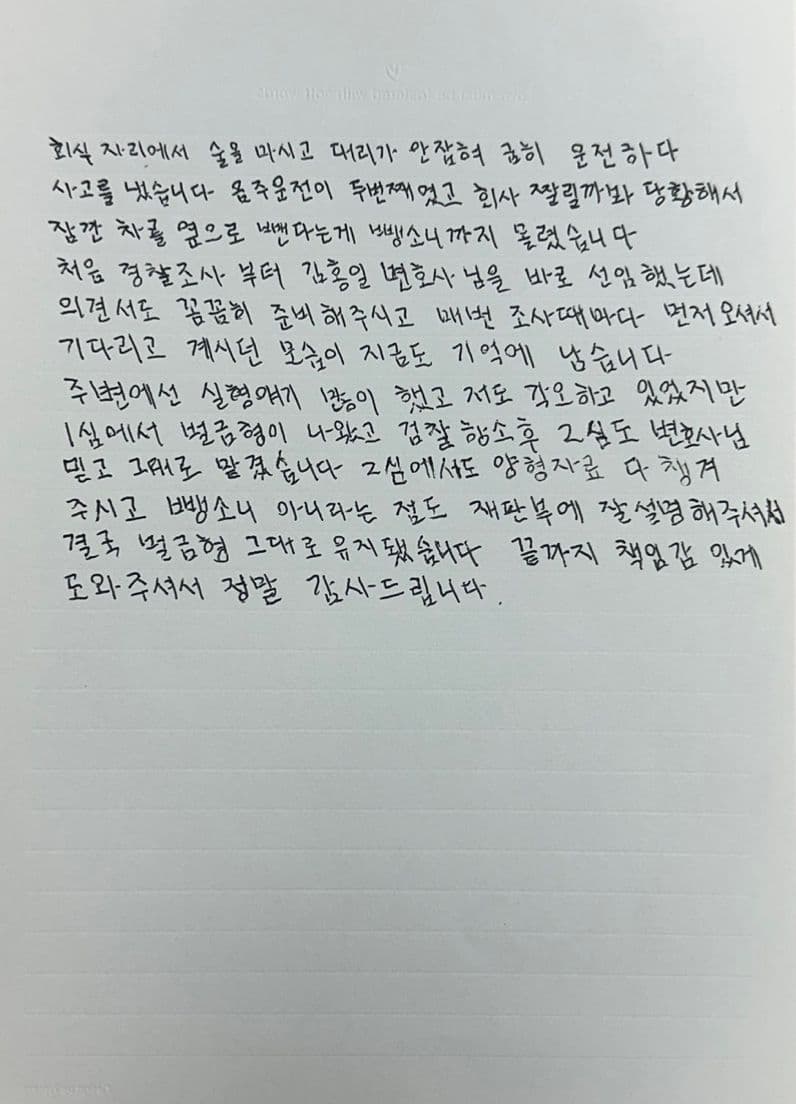 회식 자리에서 술을 마시고 대리가 안잡혀 급히 운전하다
사고를 냈습니다 음주운전이 두번째였고 회사 짤릴까봐 당황해서
잠깐 차를 옆으로 뺀다는게 뺑소니까지 몰렸습니다
처음 경찰조사 부터 김홍일 변호사님을 바로 선임했는데
의견서도 꼼꼼히 준비해주시고 매번 조사때마다 먼저오셔서
기다리고 계시던 모습이 지금도 기억에 남습니다
주변에선 실형얘기 많이 했고 저도 각오하고 있었지만
1심에서 벌금형이 나왔고 검찰 항소후 2심도 변호사님
믿고 그대로 맡겼습니다 2심에서도 양형자료 다 챙겨
주시고 뺑소니 아니라는 점도 재판부에 잘설명해주셔서
결국 벌금형 그대로 유지됐습니다 끝까지 책임감 있게
도와주셔서 정말 감사드립니다.